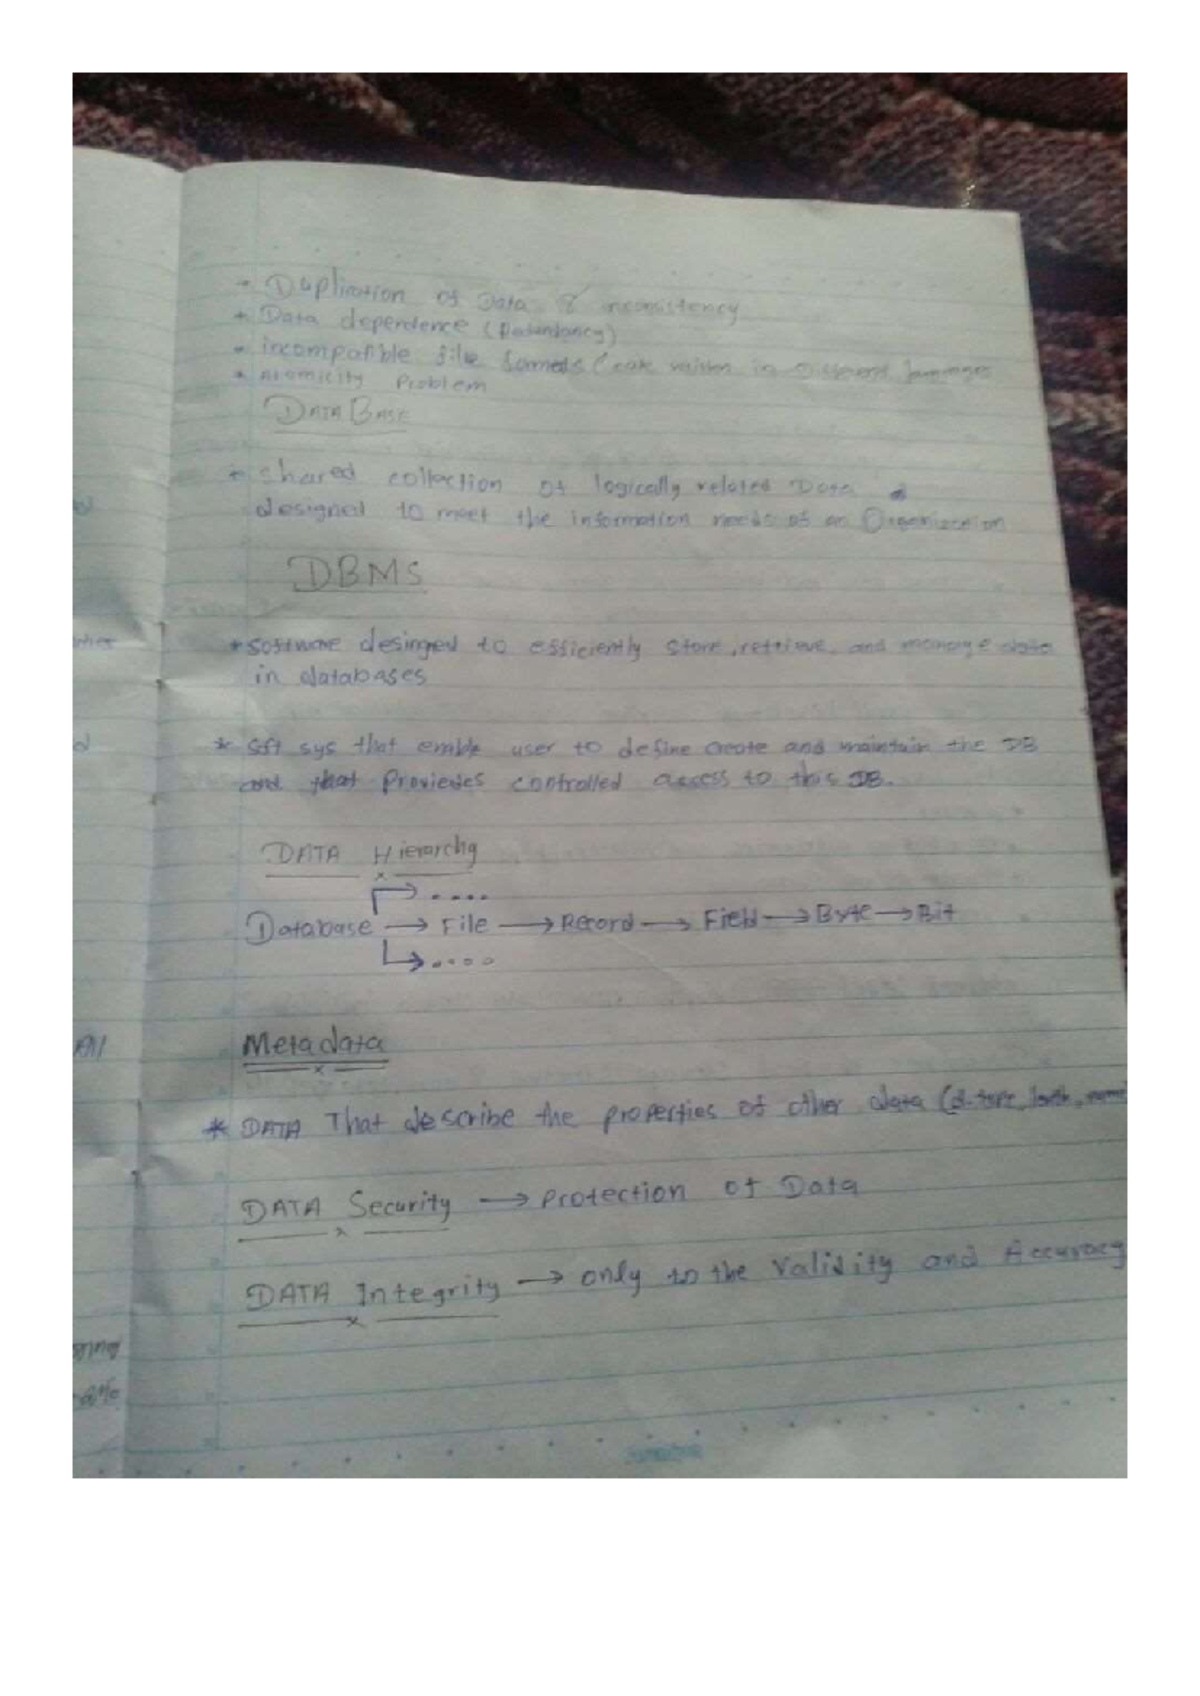 * Duplication of Data & inconsistency
* Data dependence (Redundancy)
* incompatible file formats (code written in Different languages
* Atomicity Problem
DATA BASE
* Shared collection of logically related Data
designed to meet the information needs of an Organization
DBMS
* software desinged to efficiently store, retrieve, and manage data
in databases
* soft sys that enable user to define create and maintain the DB
and that Proviedes controlled access to this DB.
DATA Hierarchy
→ ....
Database → File → Record → Field → Byte → Bit
→ ....
Metadata
* DATA That describe the properties of other data (d.type,
DATA Security → Protection of Data
DATA Integrity → only to the Validity and Accuracy